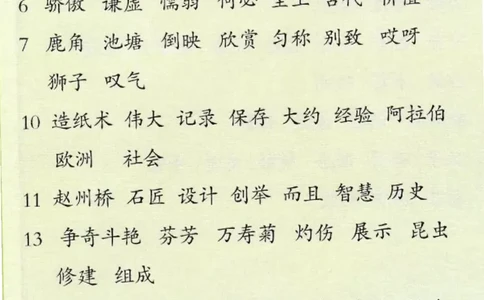 6 骄傲 谦虚 懦弱
7 鹿角 池塘 倒映 欣赏 匀称 别致 哎呀
狮子 叹气
10 造纸术 伟大 记录 保存 大约 经验 阿拉伯
欧洲 社会
11 赵州桥 石匠 设计 创举 而且 智慧 历史
13 争奇斗艳 芬芳 万寿菊 灼伤 展示 昆虫
修建 组成